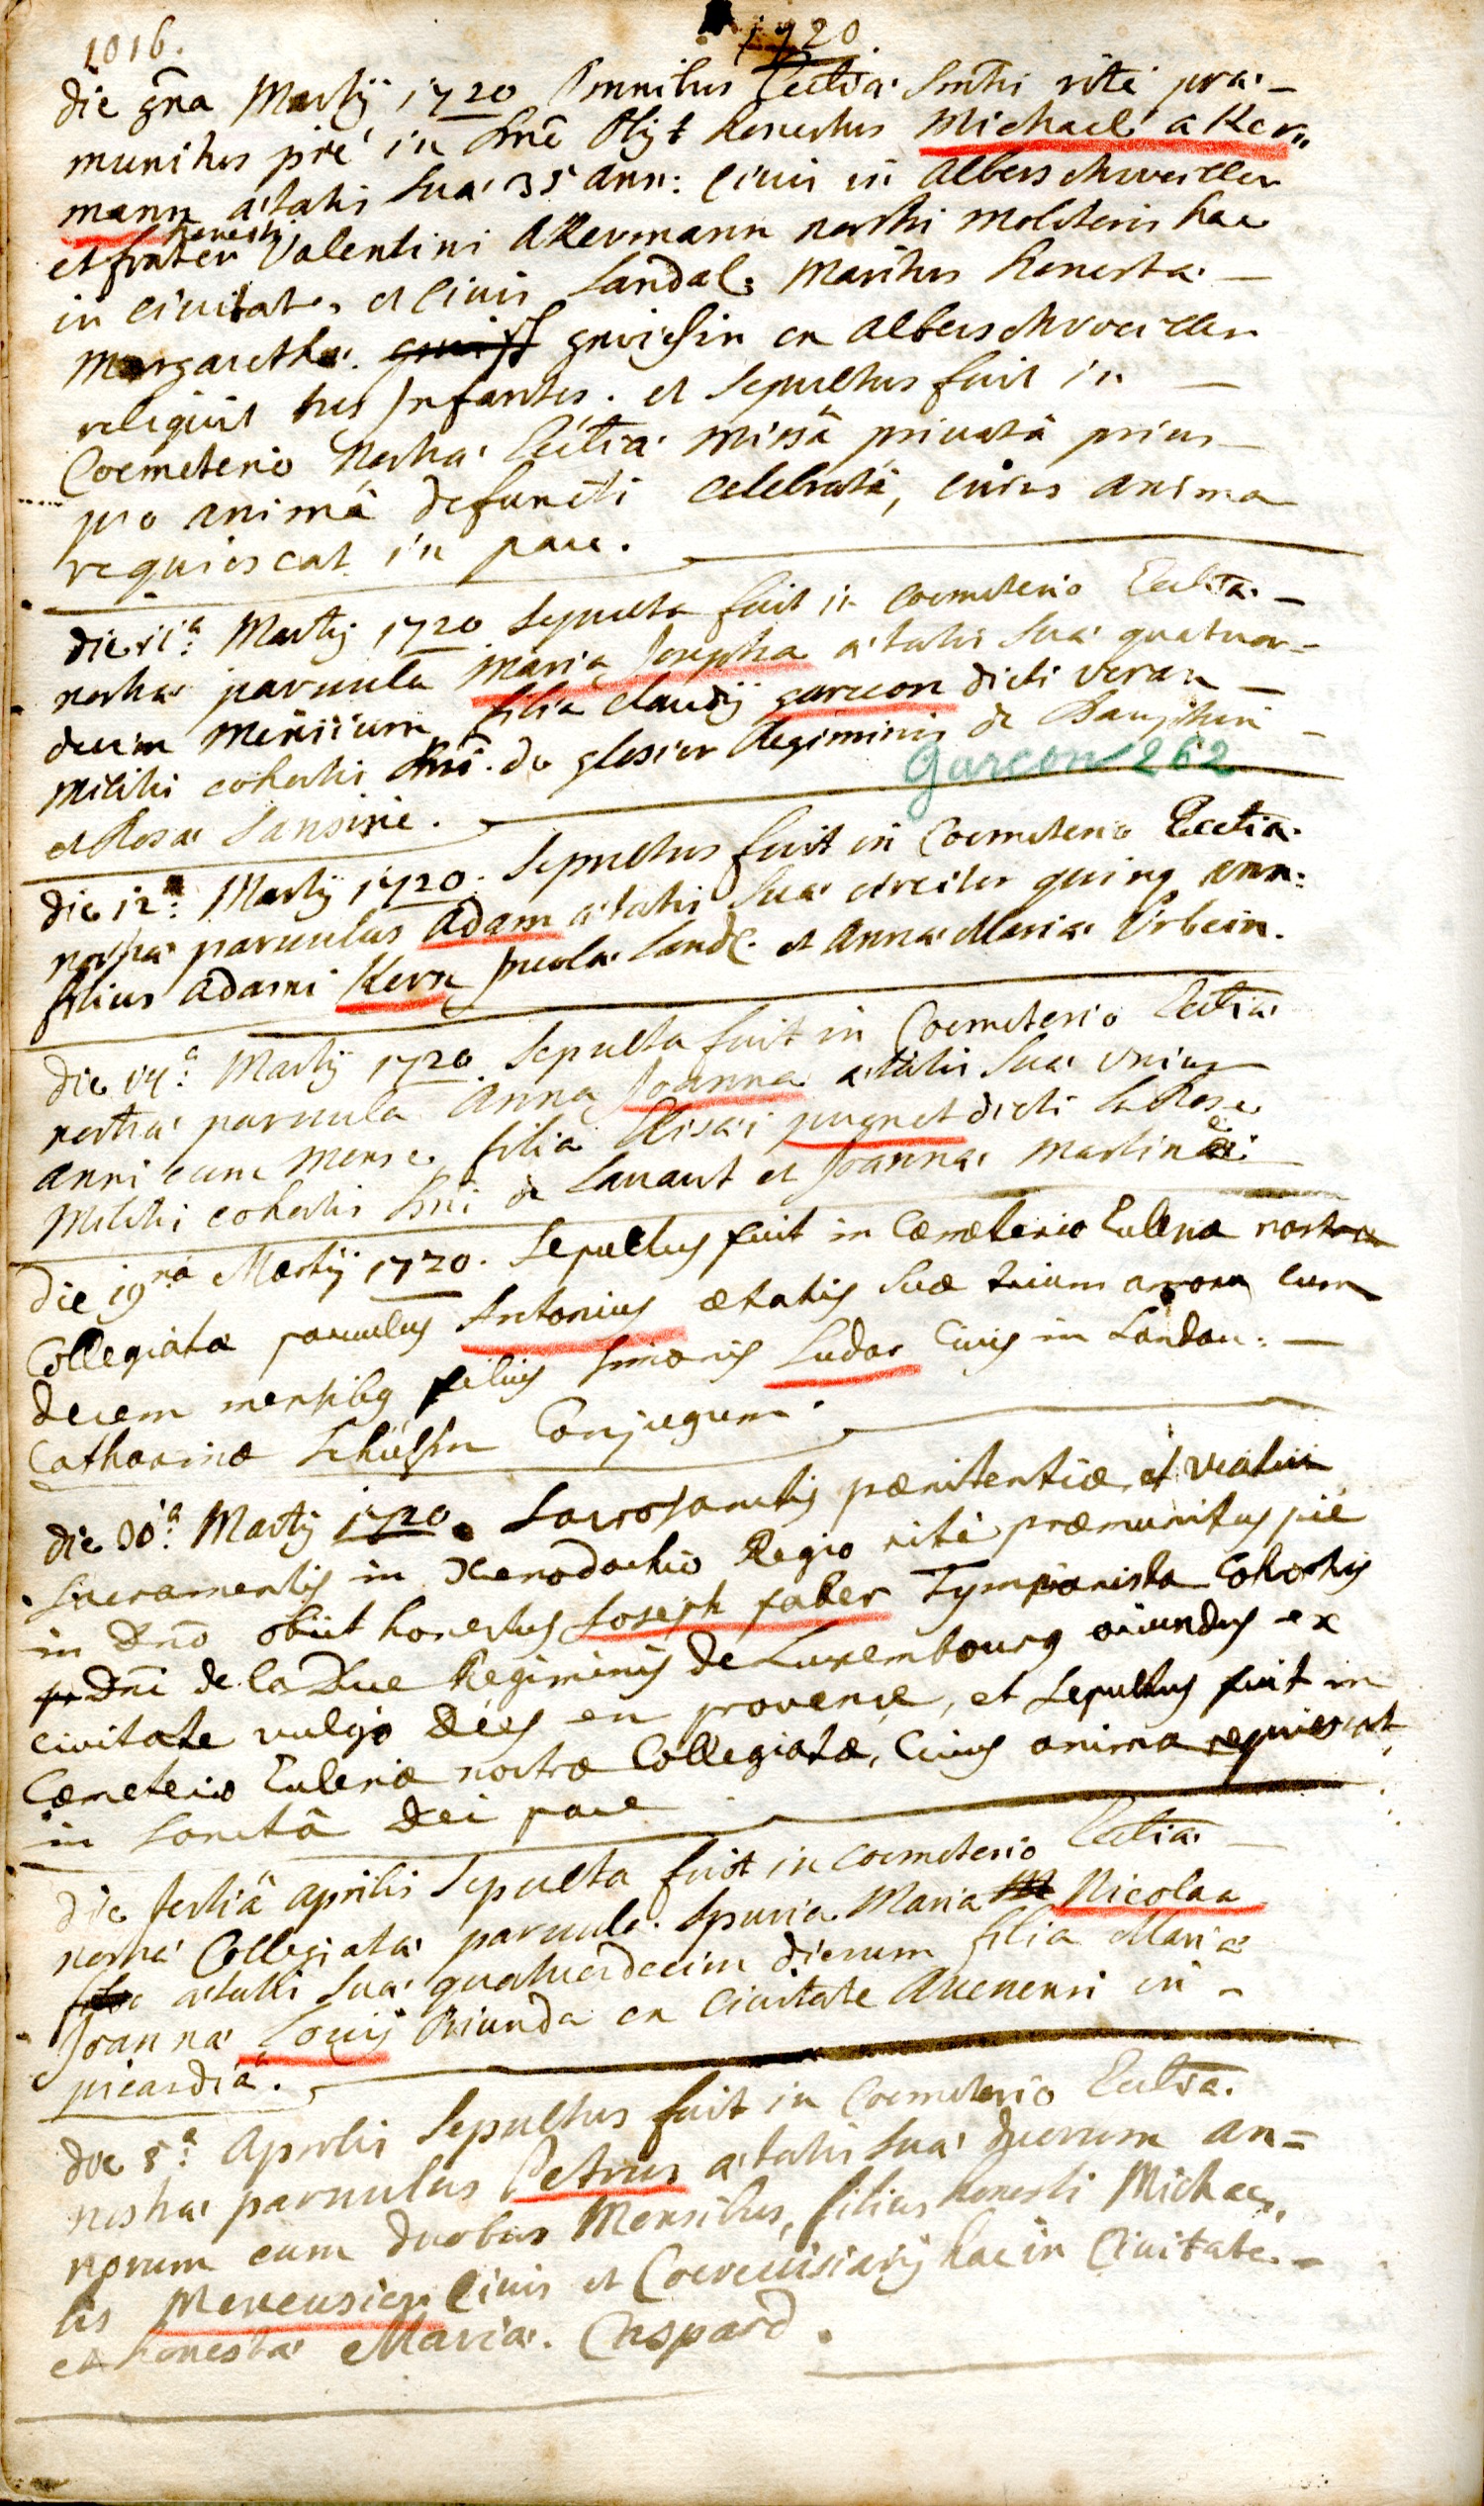 1016.
1720.
die 9na Martij 1720 Omnibus Ecctiæ Smtis rite præ-
munitus pie in Dno Obijt honestus Michael aker,,
mann ætatis Suæ 35 ann: civis in alberschweiller
et frater honesti Valentini Akermann nostri molitoris hac
in civitate, et civis Landal: Maritus honestæ -
Margarethæ gnichsin ex alberschweiller
reliquit tres Infantes. et Sepultus fuit in -
Coemeterio Nostræ Ecctiæ missâ privatâ prius
pro animâ defuncti celebratâ, cuius anima
requiescat in pace.
die 11a: Martij 1720 Sepulta fuit in Coemeterio Ecctiæ -
nostræ parvula Maria Josepha ætatis Suæ quatuor-
decim Mensium, filia claudij garçon dicti veran -
militis cohortis Dni. de glesier Regiminis de Dauphin -
Garçon 262
et Rosæ Sansirie.
die 12a: Martij 1720. Sepultus fuit in Coemeterio Ecctiæ
nostræ parvulus Adam ætatis Suæ circiter quinq ann:
filius Adami Kern Incolæ Land. et Annæ Mariæ Urbein.
die 14a: Martij 1720 Sepulta fuit in Coemeterio Ecctiæ
nostræ parvula Anna Joanna ætatis Suæ Unius
anni cum Mense, filia Elisæi pugnet dicti la Rose
Militis cohortis Dni de Lavaut et Joannæ Martinæ
die 19na Martij 1720. Sepultus fuit in Cæmeterio Eccleiæ nostræ
Collegiatæ parvulus Antonius ætatis suæ trium annoru cum
decem mensibq filius Simonis Ludar Civis in Landau: -
Catharinæ Schüessin Conjugum.
die 30a: Martij 1720. Sacrosanctis pænitentiæ et viatici
Sacramentis in Xenodochio Regio rite præmunitus pie
in Dno obiit honestus Joseph faber Tympanista Cohortis
Dni de la Due Regiminis de Luxembourg oriundus ex
civitate vulgo Dés en provence, et Sepultus fuit in
Cæmeterio Eccleiæ nostræ Collegiatæ, Cuius anima requiescat
in Sanctâ Dei pace
die tertiâ aprilis Sepulta fuit in coemeterio Ecctiæ -
nostræ Collegiatæ parvula. Spuria. Maria Nicolaa
ætatis Suæ quatuordecim dierum filia Mariæ
Joannæ Louis Oriunda ex Civitate Avenensi in -
picardia.
die 5a: Aprilis Sepultus fuit in Coemeterio Ecctiæ
nostræ parvulus Petrus ætatis Suæ duorum an=
norum cum duobus Mensibus, filius honesti Michae,,
lis Mercusier Civis et Coerevisiarij hac in Civitate. -
et honestæ Mariæ. Caspard.